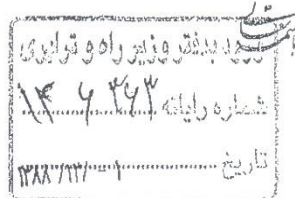 ورود بدفتر وزیر راه و ترابری
شماره رایانه ۱۴۰۶۳۶۳
تاریخ ۱۳۸۸/۱۲/۰۱